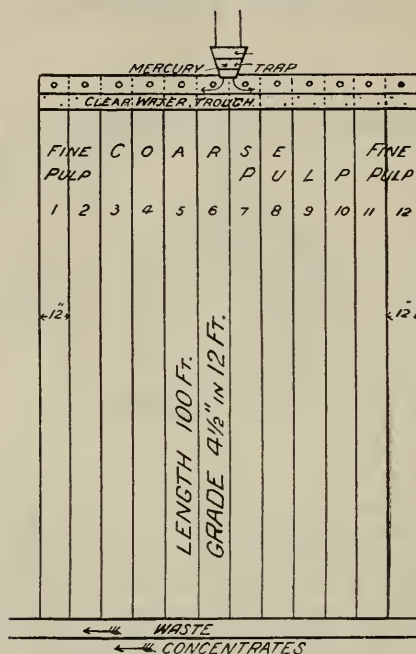 MERCURY TRAP
CLEAR WATER TROUGH
FINE COARSE FINE
PULP PULP PULP
1 2 3 4 5 6 7 8 9 10 11 12
12" 12"
LENGTH 100 FT.
GRADE 4½" IN 12 FT.
WASTE
CONCENTRATES